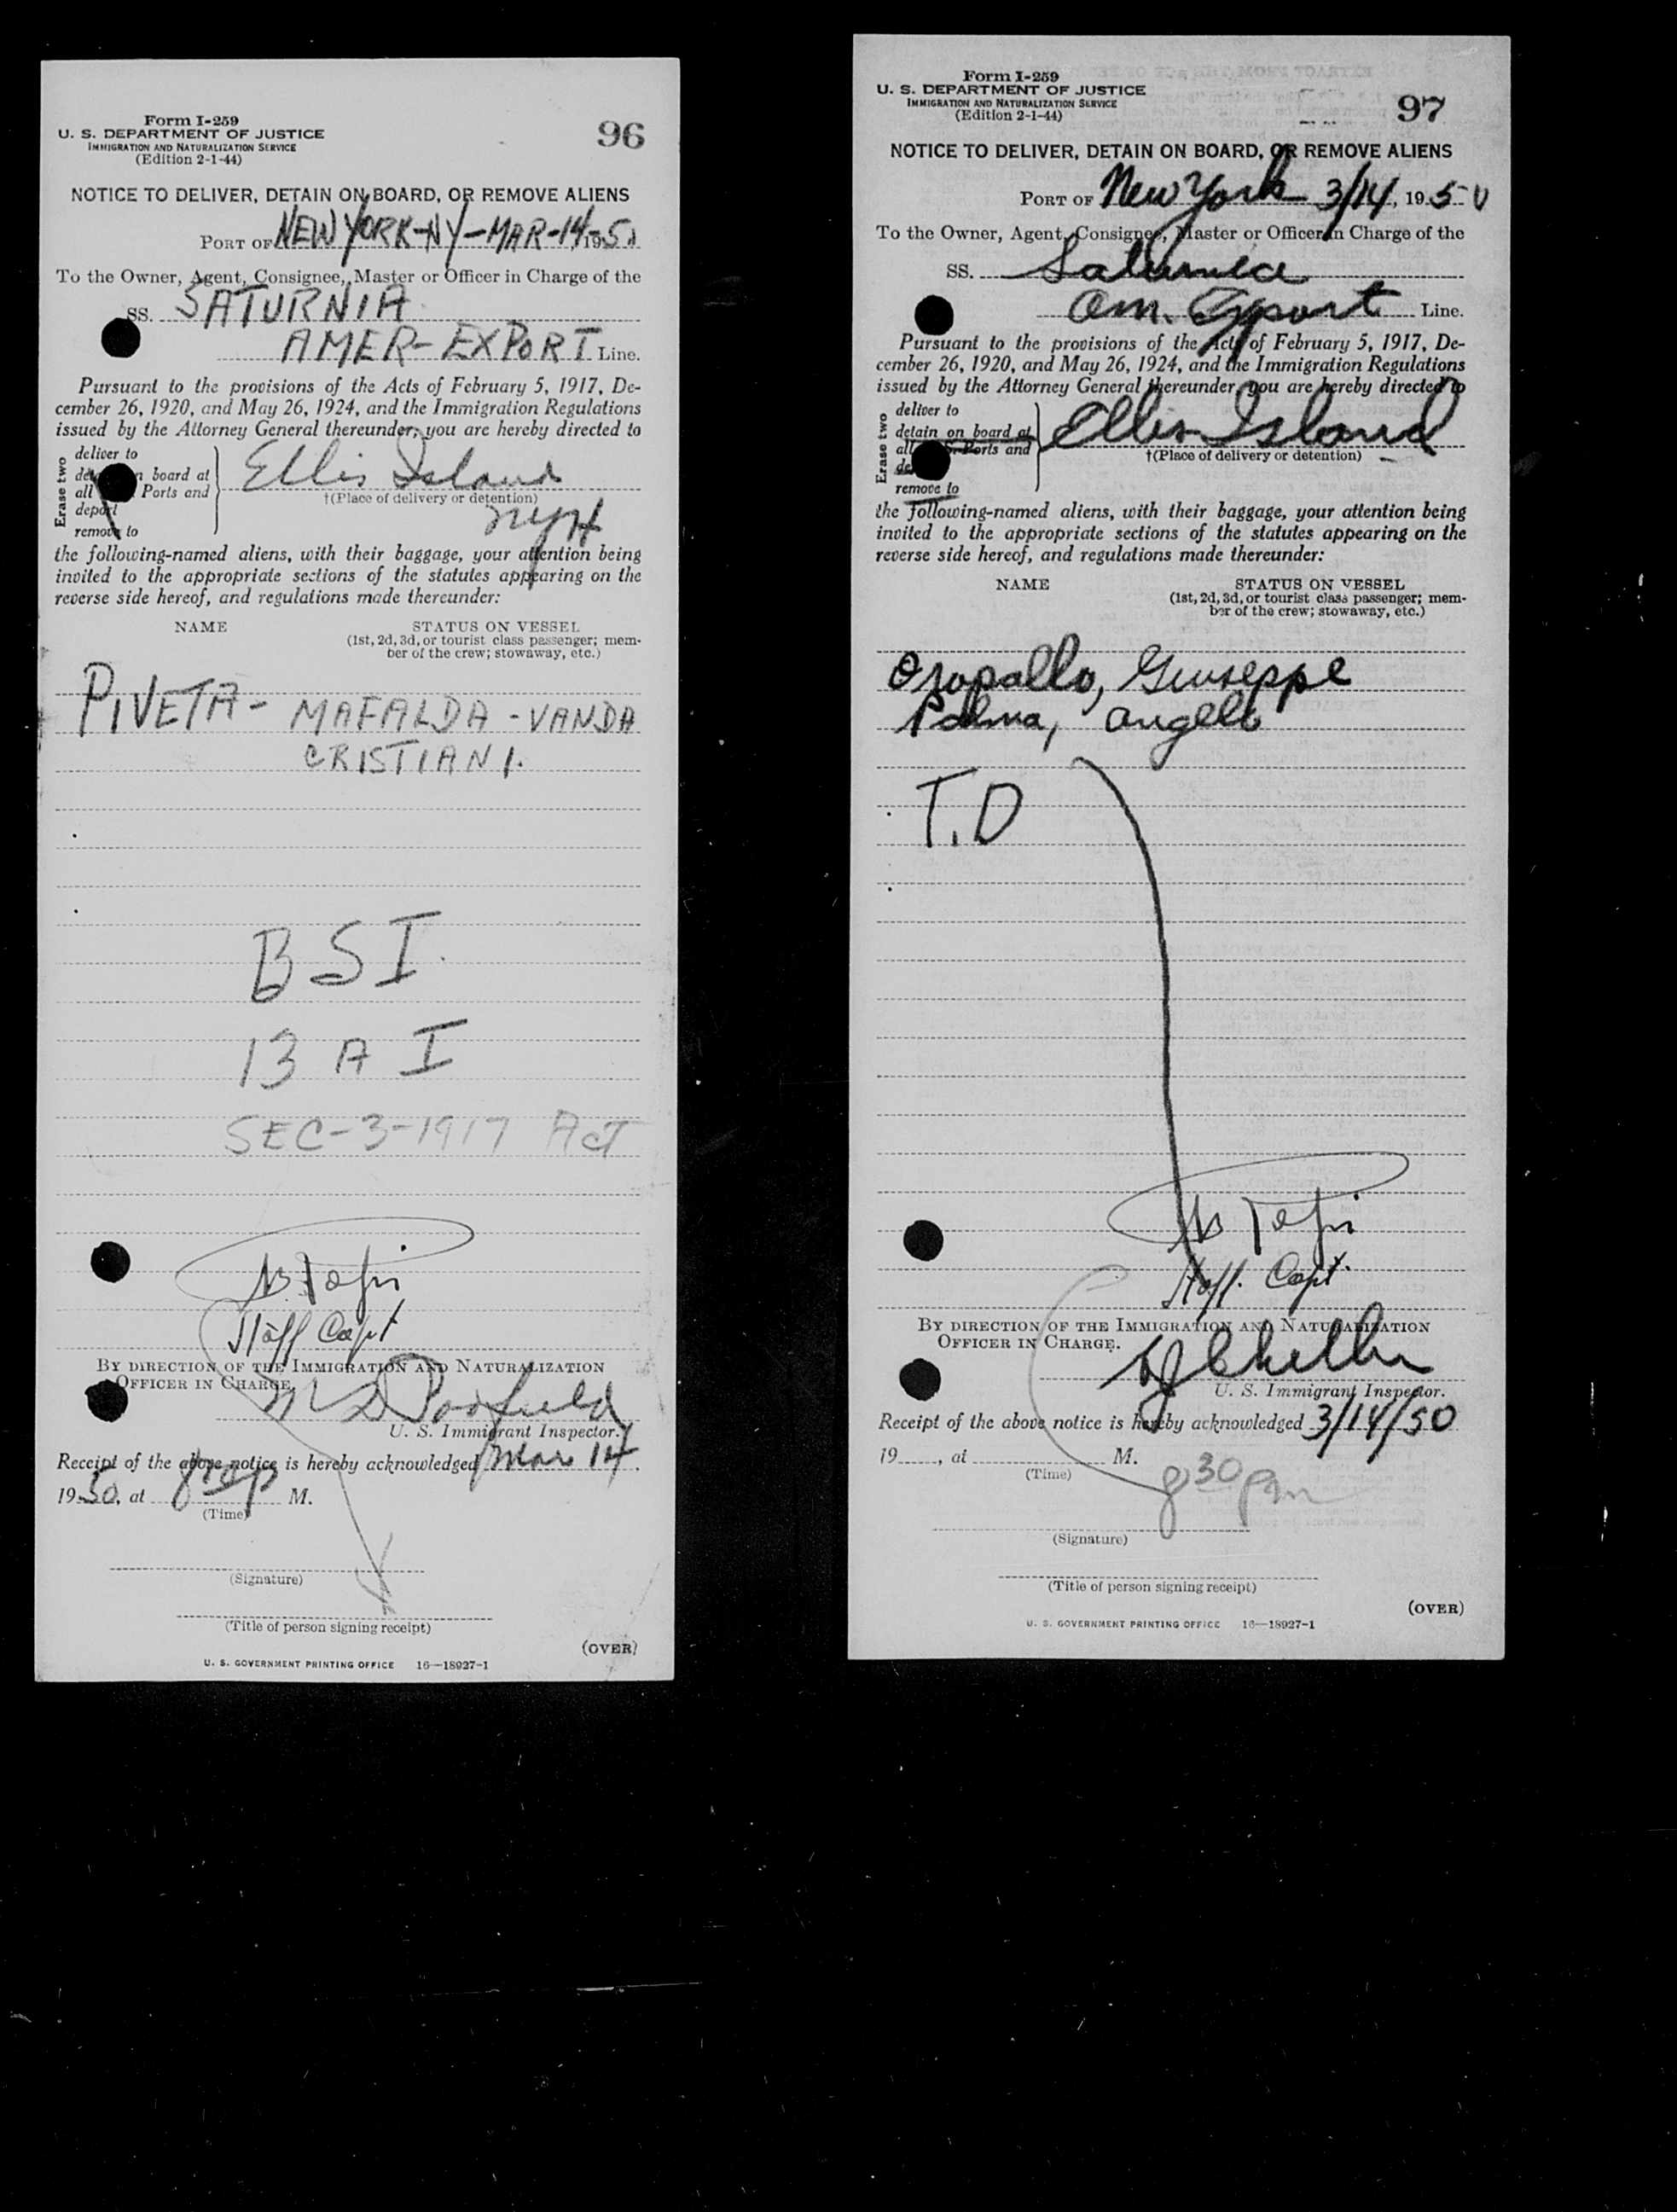 Form I-259
U. S. DEPARTMENT OF JUSTICE
IMMIGRATION AND NATURALIZATION SERVICE
(Edition 2-1-44)
96
NOTICE TO DELIVER, DETAIN ON BOARD, OR REMOVE ALIENS
PORT OF NEW YORK-NY-MAR-14-1950
To the Owner, Agent, Consignee, Master or Officer in Charge of the
SS. SATURNIA
AMER-EXPORT Line.
Pursuant to the provisions of the Acts of February 5, 1917, De-
cember 26, 1920, and May 26, 1924, and the Immigration Regulations
issued by the Attorney General thereunder, you are hereby directed to
Erase two
deliver to
board at
all Ports and
deport
remove to
Ellis Island
†(Place of delivery or detention)
NYH
the following-named aliens, with their baggage, your attention being
invited to the appropriate sections of the statutes appearing on the
reverse side hereof, and regulations made thereunder:
NAME STATUS ON VESSEL
(1st, 2d, 3d, or tourist class passenger; mem-
ber of the crew; stowaway, etc.)
PIVETA- MAFALDA-VANDA
CRISTIANI.
BSI.
13 A I
SEC-3-1917 ACT
Staff Capt
BY DIRECTION OF THE IMMIGRATION AND NATURALIZATION
OFFICER IN CHARGE.
U. S. Immigrant Inspector.
Receipt of the above notice is hereby acknowledged Mar 14.
1950, at M.
(Time)
(Signature)
(Title of person signing receipt)
(OVER)
U. S. GOVERNMENT PRINTING OFFICE 16—18927-1
Form I-259
U. S. DEPARTMENT OF JUSTICE
IMMIGRATION AND NATURALIZATION SERVICE
(Edition 2-1-44)
97
NOTICE TO DELIVER, DETAIN ON BOARD, OR REMOVE ALIENS
PORT OF New York 3/14, 1950
To the Owner, Agent, Consignee, Master or Officer in Charge of the
SS. Saturnia
Am. Export Line.
Pursuant to the provisions of the Acts of February 5, 1917, De-
cember 26, 1920, and May 26, 1924, and the Immigration Regulations
issued by the Attorney General thereunder, you are hereby directed to
Erase two
deliver to
detain on board at
all Ports and
remove to
Ellis Island
†(Place of delivery or detention)
the following-named aliens, with their baggage, your attention being
invited to the appropriate sections of the statutes appearing on the
reverse side hereof, and regulations made thereunder:
NAME STATUS ON VESSEL
(1st, 2d, 3d, or tourist class passenger; mem-
ber of the crew; stowaway, etc.)
Giuseppe
Palma, Angelo
T.D
Staff. Capt.
BY DIRECTION OF THE IMMIGRATION AND NATURALIZATION
OFFICER IN CHARGE.
U. S. Immigrant Inspector.
Receipt of the above notice is hereby acknowledged 3/14/50
19, at M.
(Time)
8 30 pm
(Signature)
(Title of person signing receipt)
(OVER)
U. S. GOVERNMENT PRINTING OFFICE 16—18927-1